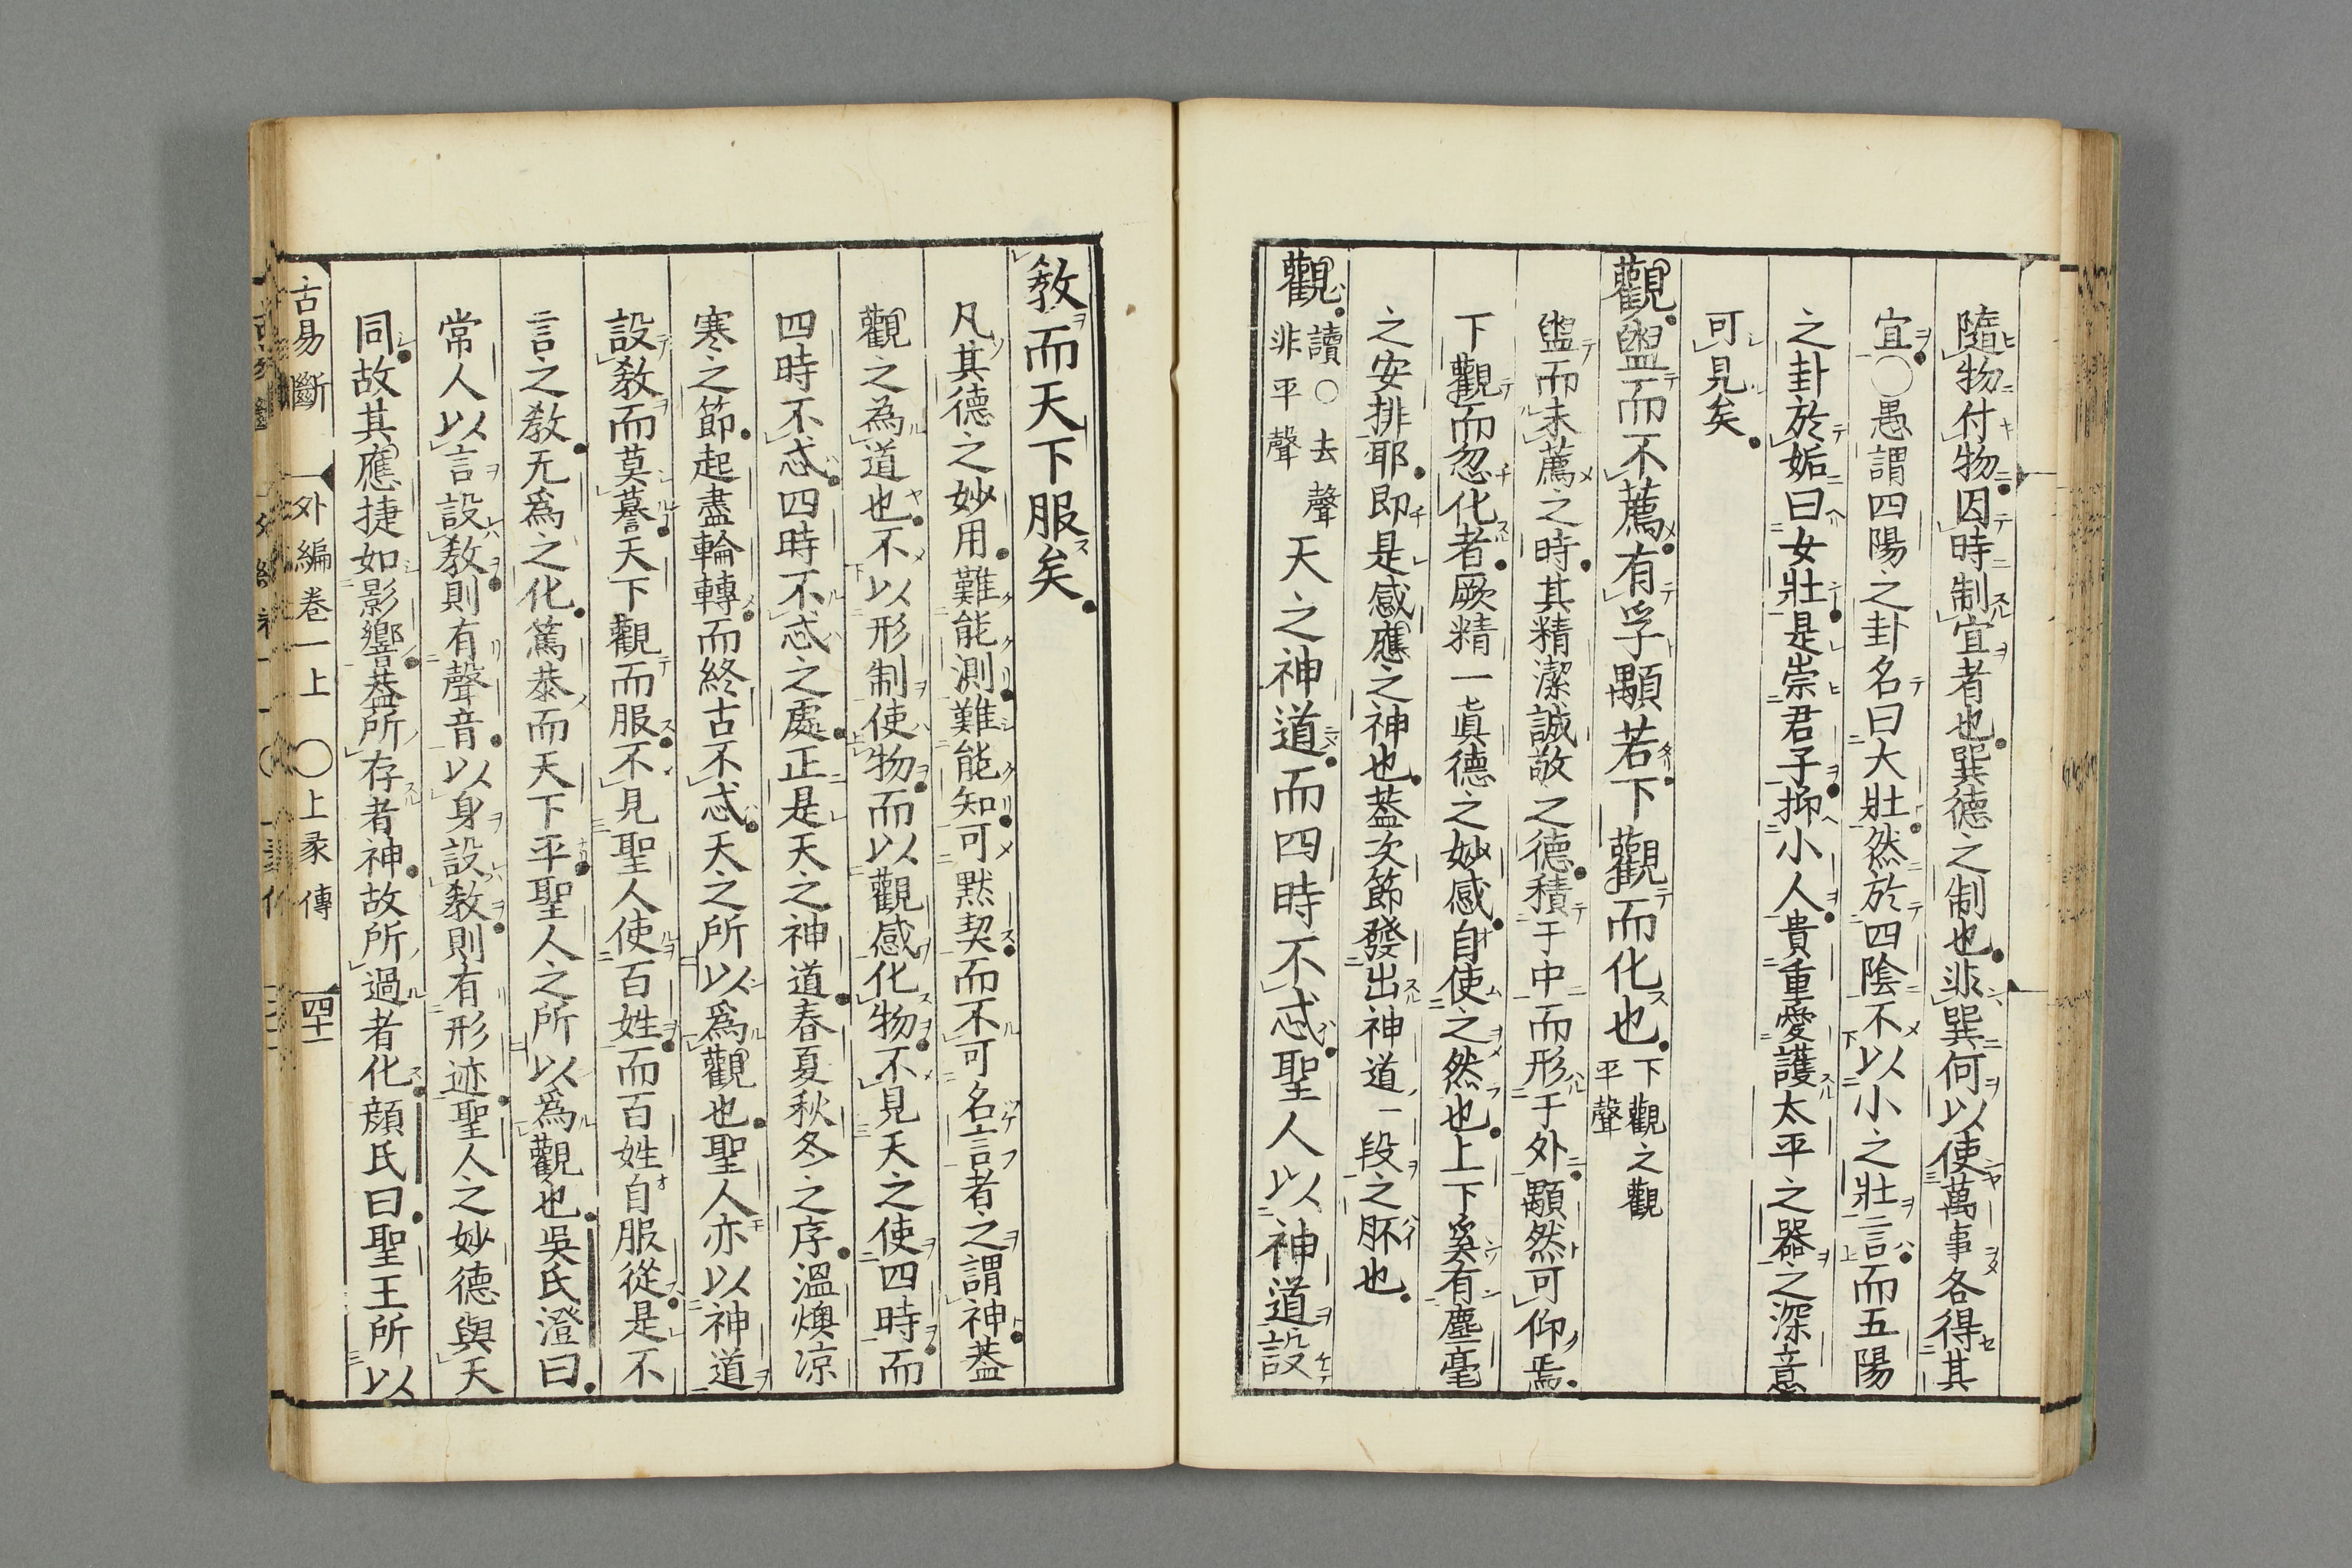 隨物付物因時制宜者也巽德之制也非巽何以使萬事各得其
宜○愚謂四陽之卦名曰大壯然於四陰不以小之壯言而五陽
之卦於姤曰女壯是崇君子抑小人貴重愛護太平之器之深意
可見矣
觀盥而不薦有孚顒若下觀而化也下觀之觀
平聲
盥而未薦之時其精潔誠敬之德積于中而形于外顒然可仰焉
下觀而忽化者厥精一眞德之妙感自使之然也上下奚有塵毫
之安排耶即是感應之神也葢次節發出神道一段之胚也
觀讀○去聲
非平聲天之神道而四時不忒聖人以神道設
敎而天下服矣
凡其德之妙用難能測難能知可黙契而不可名言者之謂神葢
觀之為道也不以形制使物而以觀感化物不見天之使四時而
四時不忒四時不忒之處正是天之神道春夏秋冬之序溫燠凉
寒之節起盡輪轉而終古不忒天之所以爲觀也聖人亦以神道
設敎而莫謩天下觀而服不見聖人使百姓而百姓自服從是不
言之敎无爲之化篤恭而天下平聖人之所以爲觀也吳氏澄曰
常人以言設敎則有聲音以身設敎則有形迹聖人之妙德與天
同故其應捷如影響葢所存者神故所過者化顔氏曰聖王所以
古易斷　外編卷一上　○上彖傳　四十